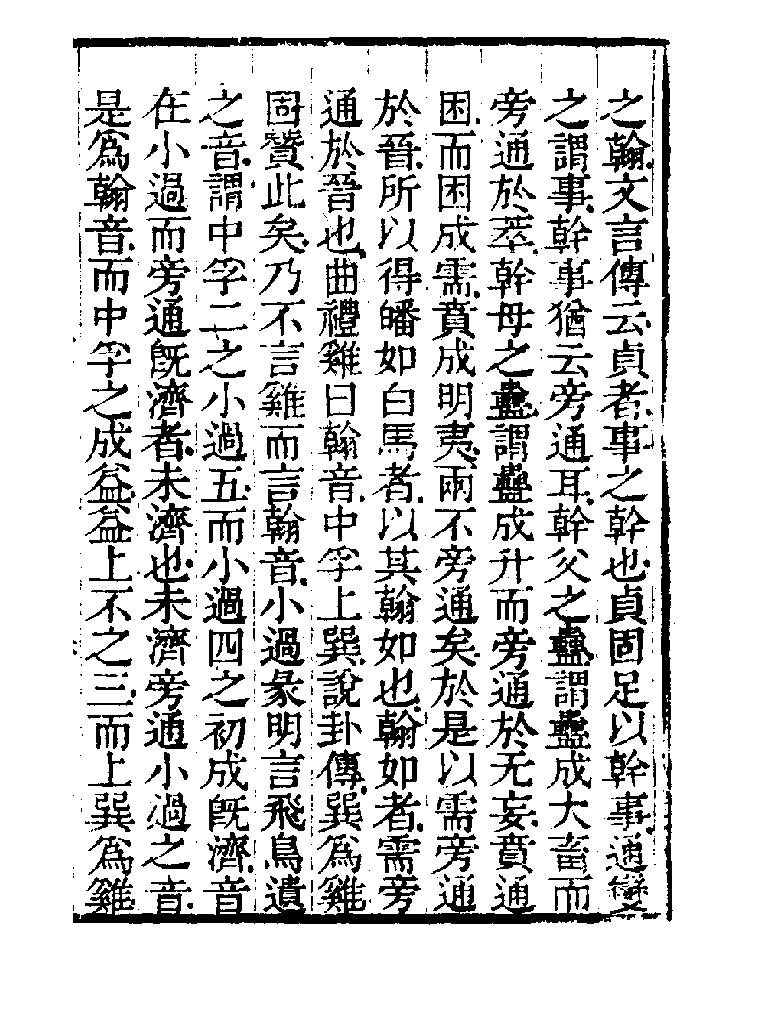 之翰文言傳云貞者事之幹也貞固足以幹事通變
之謂事幹事猶云旁通耳幹父之蠱謂蠱成大畜而
旁通於萃幹母之蠱謂蠱成升而旁通於无妄賁通
困而困成需賁成明夷兩不旁通矣於是以需旁通
於晉所以得皤如白馬者以其翰如也翰如者需旁
通於晉也曲禮雞曰翰音中孚上巽說卦傳巽爲雞
固贊此矣乃不言雞而言翰音小過彖明言飛鳥遺
之音謂中孚二之小過五而小過四之初成旣濟音
在小過而旁通旣濟者未濟也未濟旁通小過之音
是爲翰音而中孚之成益益上不之三而上巽爲雞